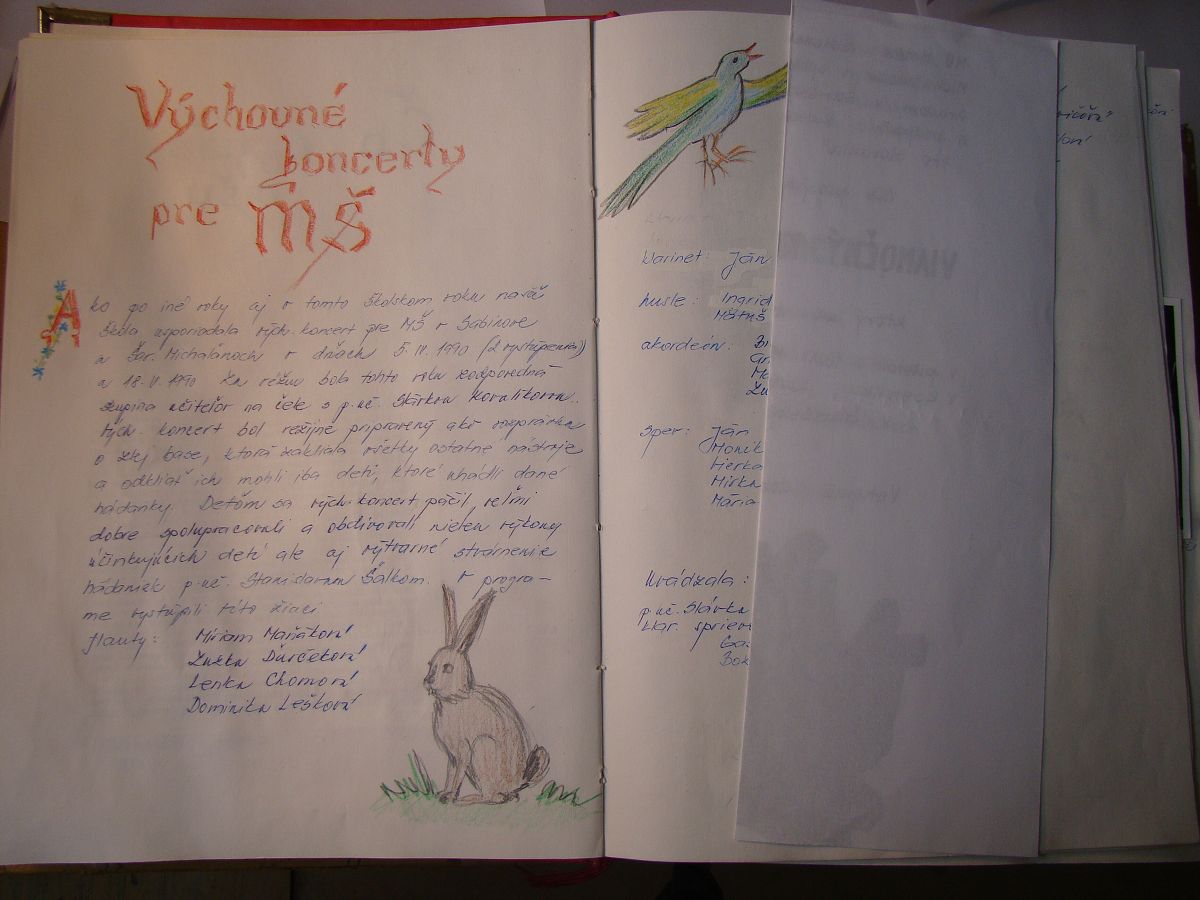 Výchovné
koncerty
pre MŠ
Ako po iné roky aj v tomto školskom roku naša
škola usporiadala vých. koncert pre MŠ v Sabinove
a Šar. Michaľanoch v dňoch 5. IV. 1990 (2 vystúpenia)
a 18. V. 1990 Za réžiu bola tohto roku zodpovedná
skupina učiteľov na čele s p. uč. Slávkou Kovalíkovou.
Vých. koncert bol režijne pripravený ako rozprávka
o zlej base, ktorá zakliala všetky ostatné nástroje
a odkliať ich mohli iba deti, ktoré uhádli dané
hádanky. Deťom sa vých. koncert páčil, veľmi
dobre spolupracovali a obdivovali nielen výkony
účinkujúcich detí ale aj výtvarné stvárnenie
hádaniek p. uč. Stanislavom Šálkom. V progra-
me vystúpili títo žiaci
flauty: Miriam Maňáková
Zuzka Ďurčeková
Lenka Chomová
Dominika Lešková
klarinet: Ján
husle: Ingrid
Matúš
akordeón:
spev: Ján
Monik
Vierka
Mirka
Mária
Uvádzala:
p. uč. Slávka
klav. spriev
VIANOČNÝ